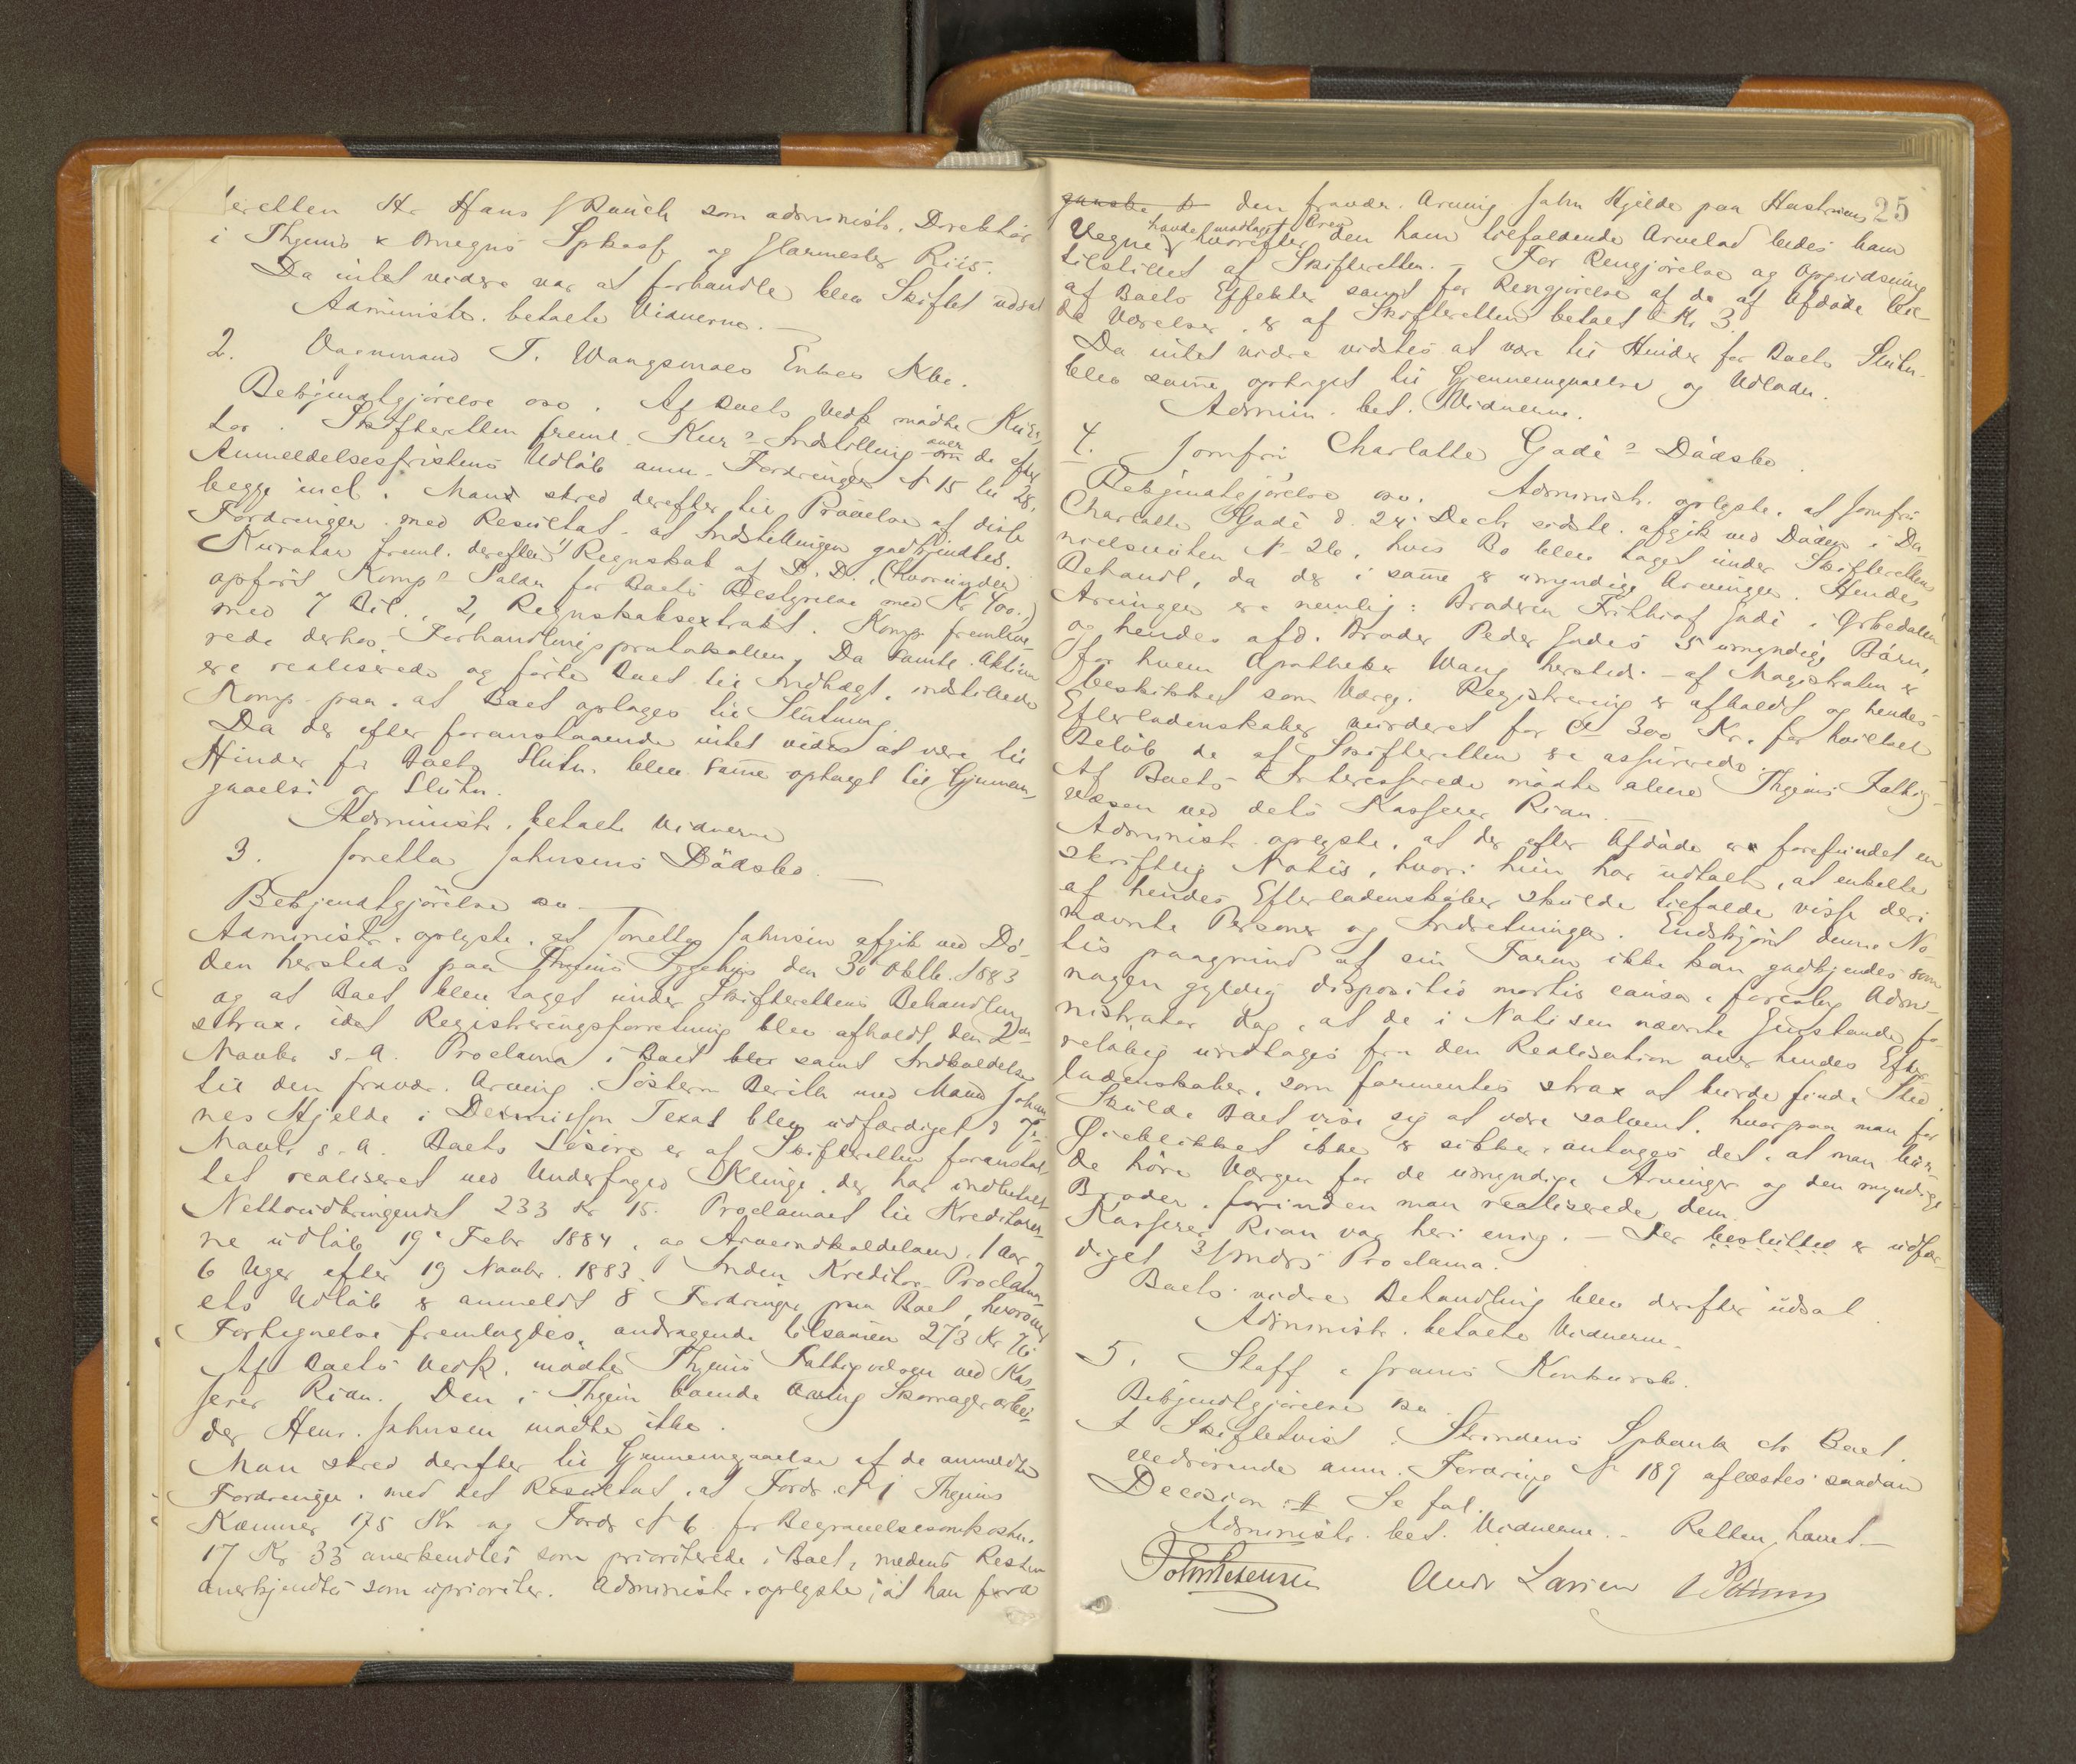 eretten Hr Hans J Rauch som administr. Direktör
i Thjems & Omegns Spkasse og Glarmester Riis.
Da intet videre var at forhandle blev Skiftet udsat
Administr. betalte Vidnerne. —
2. Vognmand T. Wangsmoes Enkes Kbo.
Bekjendtgjörelse osv. Af Boets Vedk. mödte Kura-
tor. Skifteretten freml. Kur's Indstilling over de efter
Anmeldelsesfristens Udlöb anm. Fordringer No 15 til 28,
begge incl. Man skred derefter til Pröuelse af disse
Fordringer med Resultat at Indstillingen godkjendtes.
Kurator freml. derefter 1) Regnskab af D. D. (hvorunder
opfört Komp's Salær for Boets Bestyrelse med Kr 400.)
med 7 Bil., 2, Regnskabsextrakt. Komp. fremleve-
rede derhos Forhandlingsprotokollen. Da samtl. Aktiver
ere realiserede og förte Boet til Indtægt, indstillede
Komp. paa, at Boet optages til Slutning.
Da der efter foranstaaende intet vides at være til
Hinder for Boets Slutn. blev samme optaget til Gjennem-
gaaelse og Slutn.
Administr. betalte Vidnerne
3. Jonetta Johnsens Dödsbo. —
Bekjendtgjörelse osv —
Administr. oplyste, at Jonetta Johnsen afgik ved Dö-
den hersteds paa Thjems Sygehus den 30 Oktb. 1883
og at Boet blev taget under Skifterettens Behandling
strax, idet Registreringsforretning blev afholdt den 2den
Novbr s. A. Proclama i Boet blev samt Indkaldelse
til den fravær. Arving, Söstern Berith med Mand Johan-
nes Hjelde i Dennisson Texas blev udfærdiget d 7de
Novbr s. A. Boets Lösöre er af Skifteretten foranstal-
tet realiseret ved Underfoged Klinge, der har indbetalt
Nettoudbringendet 233 Kr 15. Proclamaet til Kreditorer-
ne udlöb 19. Febr 1884, og Arveindkaldelsen 1 Aar,
6 Uger efter 19 Novbr. 1883. Inden Kreditor-Proclama-
ets Udlöb er anmeldt 8 Fordringer paa Boet, hvorover
Fortegnelse fremlagdes, andragende tilsammen 273 Kr 76
Af Boets Vedk. mödte Thjems Fattigvæsen ved Kas-
serer Rian. Den i Thjem boende Arving Skomagerarbei-
der Henr. Johnsen mödte ikke.
Man skred derefter til Gjennemgaaelse af de anmeldte
Fordringer, med det Resultat, at Fordr. No 1 Thjems
Kæmner 175 Kr og Fordr No 6 for Begravelsesomkostn.
17 Kr 33 anerkendtes som prioriterede i Boet, medens Resten
anerkjendtes som upriorter. Administr. oplyste, at han fora
25
ganske for den fravær. Arving John Hjelde paa Hustruens
havde modtaget Brev
Vegne, hvorefter den ham tilfaldende Arvelod bedes ham
tilstillet af Skifteretten. — For Rengjörelse og Oppudsning
af Boets Effekter samt for Rengjörelse af de af Afdöde bebo-
de Værelser er af Skifteretten betalt Kr 3.
Da intet videre vidstes at være til Hinder for Boets Slutn.
blev samme optaget til Gjennemgaaelse og Udlodn.
Admin. bet. Vidnerne.
4. Jomfru Charlotte Gadé's Dödsbo.
Bekjendtgjörelse osv. Administr. oplyste, at Jomfru
Charlotte Gadé d. 24. Decbr sidstl. afgik ved Döden i Da-
nielsveiten No 26, hvis Bo blev taget under Skifterettens
Behandl, da der i samme er umyndige Arvinger. Hendes
Arvinger ere nemlig: Broderen Frithiof Gadé i Örkedalen
og hendes afd. Broder Peder Gadés 5 umyndige Börn,
for hvem Apotheker Wang hersteds af Magistraten er
beskikket som Værge. Registrering er afholdt og hendes
Efterladenskaber vurderet for ca 300 Kr. for hvilket
Belöb de af Skifteretten ere assurerede.
Af Boets Interesserede mödte alene Thjems Fattig-
væsen ved dets Kasserer Rian. —
Administr. oplyste, at der efter Afdöde er forefundet en
skriftlig Notis, hvori hun har udtalt, at enkelte
af hendes Efterladenskaber skulde tilfalde visse deri
nævnte Personer og Indretninger. Endskjönt denne No-
tis paagrund af sin Form ikke kan godkjendes som
nogen gyldig dispositio mortis causa, foreslog Admi-
nistrator dog, at de i Notisen nævnte Gjenstande fo-
relöbig undtages fra den Realisation over hendes Efter-
ladenskaber, som formentes strax at burde finde Sted.
Skulde Boet vise sig at være solvent, hvorpaa man for
Öieblikket ikke er sikker, antoges det, at man bur-
de höre Værgen for de umyndige Arvinger og den myndige
Broder, forinden man realiserede dem.
Kasserer Rian var heri enig. — Der besluttes er udfær-
diget 3/mdrs Proclama.
Boets videre Behandling blev derefter udsat.
Administr. betalte Vidnerne.
5. Staff & Grams Konkursb.
Bekjendtgjörelse osv
I Skiftetvist: Strindens Spbank ctr Boet,
vedrörende anm. Fordring No 189 aflæstes saadan
Decision: Se fol.
Administr. bet. Vidnerne. — Retten hævet. —
Andr Larsen